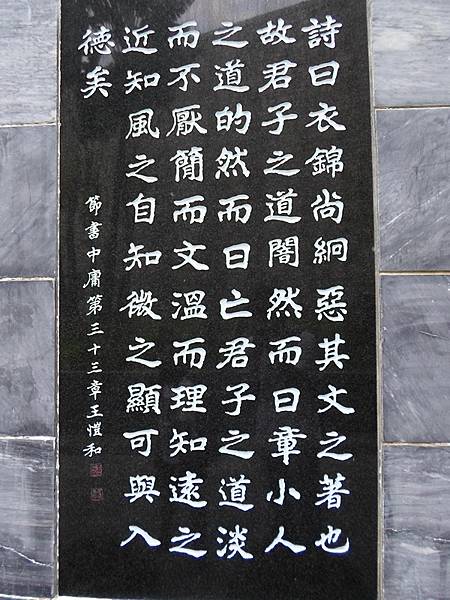 詩曰衣錦尚絅惡其文之著也
故君子之道闇然而日章小人
之道的然而日亡君子之道淡
而不厭簡而文溫而理知遠之
近知風之自知微之顯可與入
德矣
節書中庸第三十三章王愷和